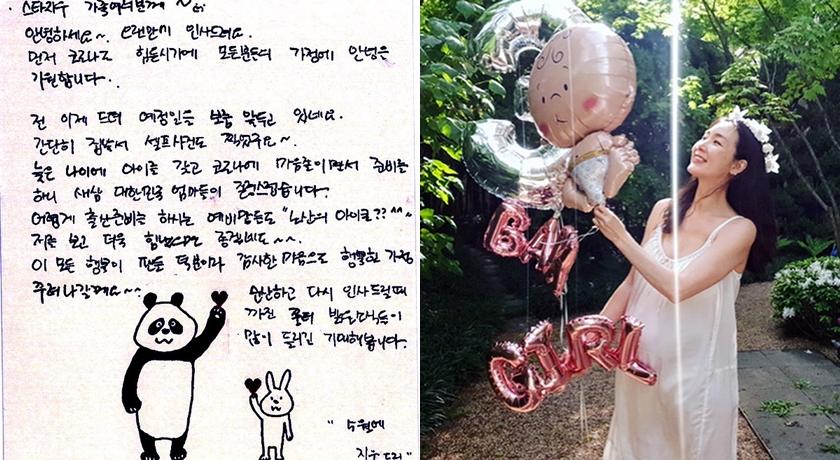 스타지우 가족여러분께 ~
안녕하세요~. 오랜만에 인사드려요.
먼저 코로나로 힘든시기에 모든분들의 가정에 안녕을
기원합니다.
전 이제 드뎌 예정일을 보름 앞두고 있네요.
간단히 집앞에서 셀프사진도 찍었구요~.
늦은 나이에 아이를 갖고 코로나에 마음졸이면서 준비를
하니 새삼 대한민국 엄마들이 존경스럽습니다.
어렵게 출산준비를 하시는 예비맘들도 "노산의 아이콘?? ^^~
저를 보고 더욱 힘냈으면 좋겠네요~~.
이 모든 행복이 팬들 덕분이라 감사한 마음으로 행복한 가정
꾸려나갈께요~~
출산하고 다시 인사드릴때
까진
많이 들리길 기대해봅니다.
" 5월에
지우 드림"
BABY
GIRL